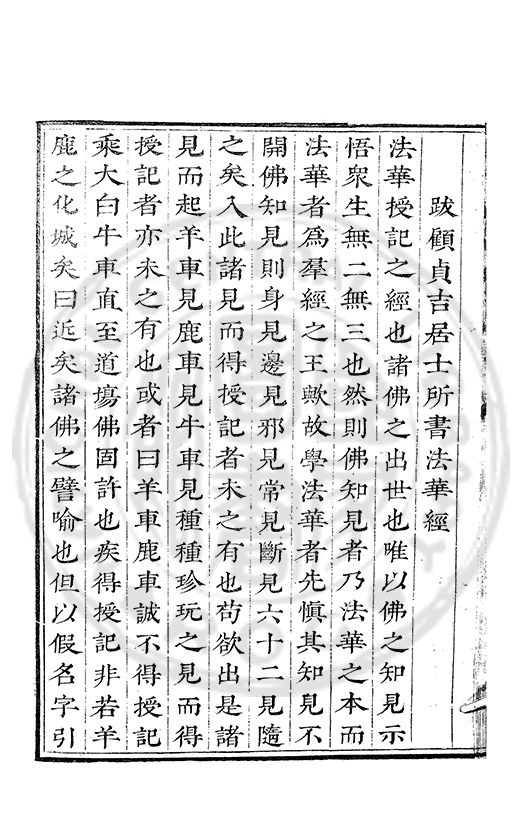 跋顧貞吉居士所書法華經
法華授記之經也諸佛之出世也唯以佛之知見示
悟衆生無二無三也然則佛知見者乃法華之本而
法華者爲羣經之王歟故學法華者先愼其知見不
開佛知見則身見邊見邪見常見斷見六十二見隨
之矣入此諸見而得授記者未之有也苟欲出是諸
見而起羊車見鹿車見牛車見種種珍玩之見而得
授記者亦未之有也或者曰羊車鹿車誠不得授記
乘大白牛車直至道場佛固許也疾得授記非若羊
鹿之化城矣曰近矣諸佛之譬喻也但以假名字引